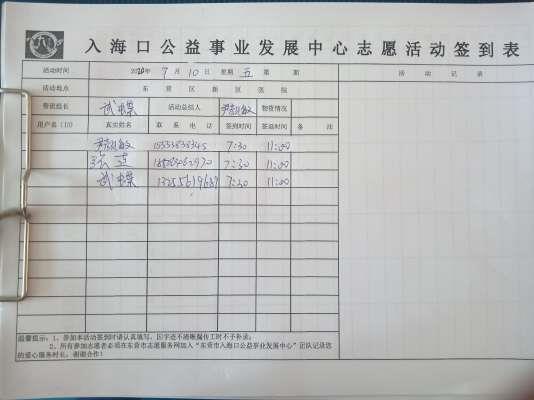 入海口公益事业发展中心志愿活动签到表
活动时间 2020年 7月10日 星期五 第 期 活动记录
活动地点 东营区新区医院
带班组长 武蝶 活动总结人 物资情况
用户名(ID) 真实姓名 联系电话 签到时间 签退时间 备注
7:30 11:00
7:30 11:00
武蝶 7:30 11:00
温馨提示:1、参加本活动签到时请认真填写,因字迹不清晰漏传工时不予补录;
2、所有参加志愿者必须在东营市志愿服务网加入“东营市入海口公益事业发展中心”团队记录您
的爱心服务时长。谢谢合作!